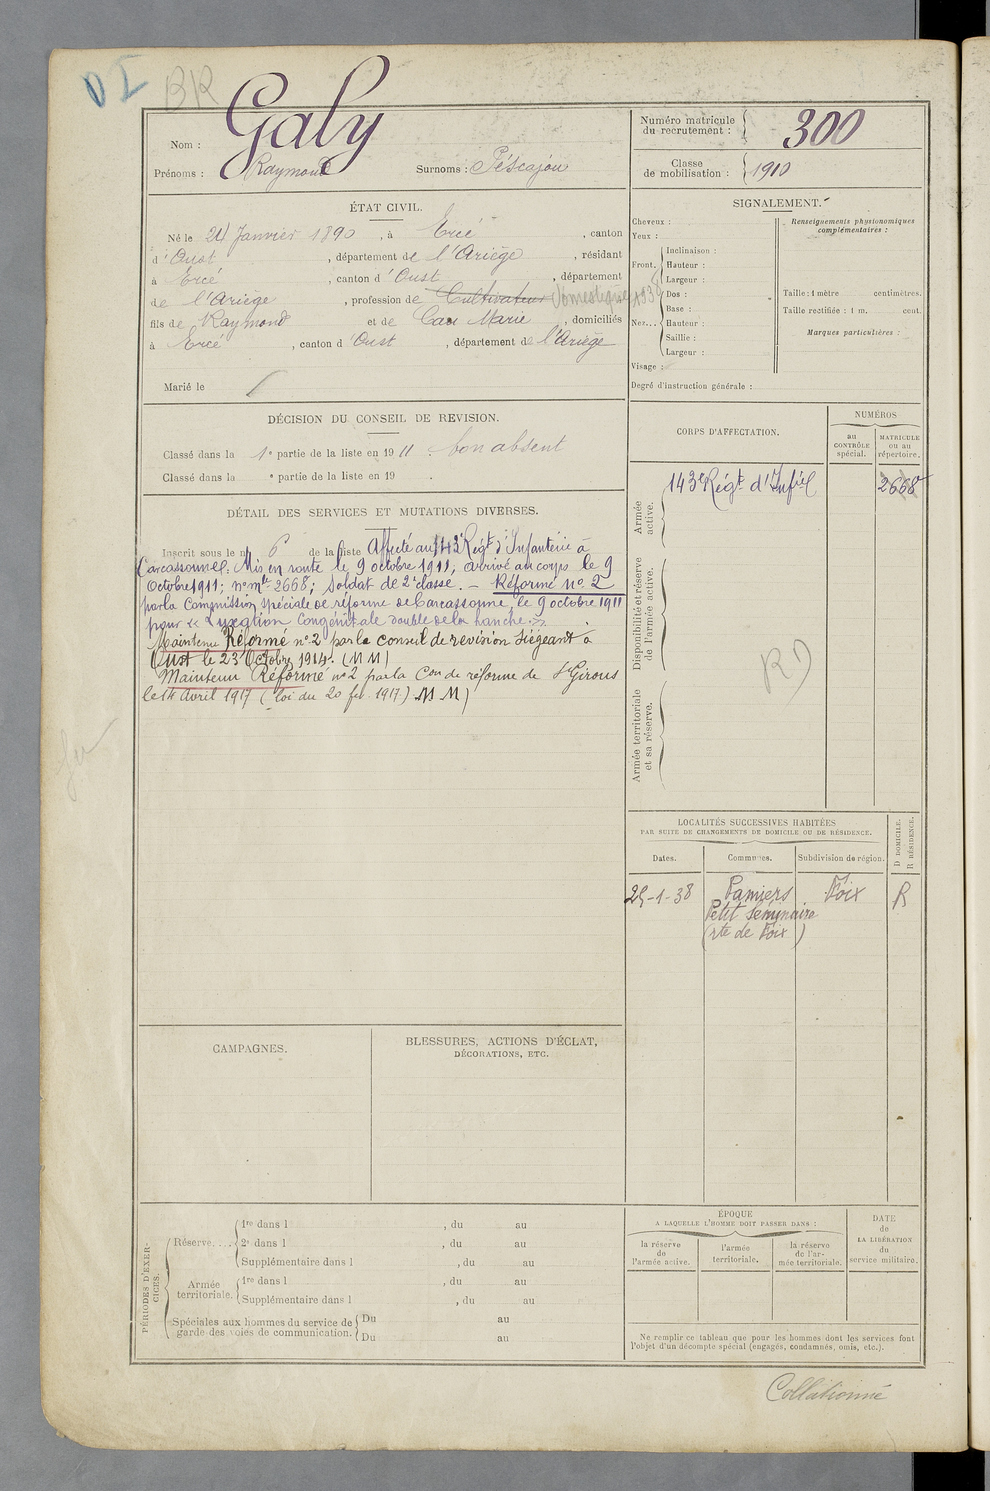 BR
Nom : Galy
Prénoms : Raymond Surnoms : Péscajou
Numéro matricule du recrutement : 300
Classe de mobilisation : 1910
ÉTAT CIVIL.
Né le 24 Janvier 1890, à Ercé, canton
d'Oust, département de l'Ariège, résidant
à Ercé, canton d'Oust, département
de l'Ariège, profession de Cultivateur Domestique 1938
fils de Raymond et de Caux Marie, domiciliés
à Ercé, canton d'Oust, département de l'Ariège
Marié le
SIGNALEMENT.
Cheveux :
Yeux :
Front. Inclinaison :
Hauteur :
Largeur :
Nez... Dos :
Base :
Hauteur :
Saillie :
Largeur :
Visage :
Renseignements physionomiques
complémentaires :
Taille : 1 mètre centimètres.
Taille rectifiée : 1 m. cent.
Marques particulières :
Degré d'instruction générale :
DÉCISION DU CONSEIL DE REVISION.
Classé dans la 1e partie de la liste en 1911. bon absent
Classé dans la e partie de la liste en 19 .
CORPS D'AFFECTATION.
NUMÉROS
au CONTRÔLE spécial.
MATRICULE ou au répertoire.
Armée active.
143e Régt d'Infie 2668
Disponibilité et réserve de l'armée active.
RD
Armée territoriale et sa réserve.
DÉTAIL DES SERVICES ET MUTATIONS DIVERSES.
Inscrit sous le no 6 de la liste Affecté au 143e Régt d'Infanterie à
Carcassonne. Mis en route le 9 octobre 1911, arrivé au corps le 9
Octobre 1911; no mle 2668; Soldat de 2e classe. – Réformé no 2
par la Commission spéciale de réforme de Carcassonne, le 9 octobre 1911
pour « Luxation Congénitale double de la hanche. »
Maintenu Réformé no 2 par le conseil de révision siégeant à
Oust le 23 Octobre 1914. (M M)
Maintenu Réformé no 2 par la Con de réforme de St Girons
le 14 Avril 1917 (loi du 20 fév. 1917) M M)
LOCALITÉS SUCCESSIVES HABITÉES
PAR SUITE DE CHANGEMENTS DE DOMICILE OU DE RÉSIDENCE.
Dates. Communes. Subdivision de région. D DOMICILE. R RÉSIDENCE.
25-1-38 Pamiers Foix R
Petit séminaire
(rte de Foix)
CAMPAGNES.
BLESSURES, ACTIONS D'ÉCLAT,
DÉCORATIONS, ETC.
PÉRIODES D'EXERCICES.
Réserve.... 1re dans l , du au
2e dans l , du au
Supplémentaire dans l , du au
Armée territoriale. 1re dans l , du au
Supplémentaire dans l , du au
Spéciales aux hommes du service de garde des voies de communication. Du au
Du au
ÉPOQUE
A LAQUELLE L'HOMME DOIT PASSER DANS :
la réserve de l'armée active.
l'armée territoriale.
la réserve de l'armée territoriale.
DATE de LA LIBÉRATION du service militaire.
Ne remplir ce tableau que pour les hommes dont les services font
l'objet d'un décompte spécial (engagés, condamnés, omis, etc.).
Collationné